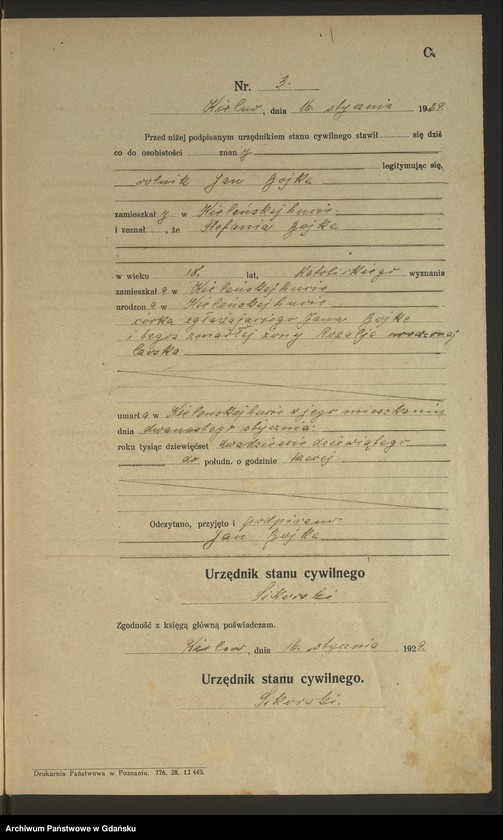 C.
Nr. 3.
Kielno, dnia 16 stycznia 1929.
Przed niżej podpisanym urzędnikiem stanu cywilnego stawił się dziś
co do osobistości znany
legitymując się,
rolnik Jan Gojke
zamieszkały w Kieleńskejhucie.
i zeznał, że Stefania Gojke
w wieku 18 lat, katolickiego wyznania
zamieszkała w Kieleńskejhucie
urodzona w Kieleńskejhucie
córka zgłaszającego Jana Gojke
i tegoż zmarłej żony Rozalje urodzonej
umarła w Kielenskejhucie w jego mieszkaniu
dnia dwanastego stycznia.
roku tysiąc dziewięćset dwadzieścia dziewiątego
do połudn. o godzinie
Odczytano, przyjęto i podpisano
Jan Gojke
Urzędnik stanu cywilnego
Sikorski
Zgodność z księgą główną poświadczam.
Kielno, dnia 16. stycznia 1929.
Urzędnik stanu cywilnego.
Sikorski.
Drukarnia Państwowa w Poznaniu. 776. 28. 13 445.
Archiwum Państwowe w Gdańsku